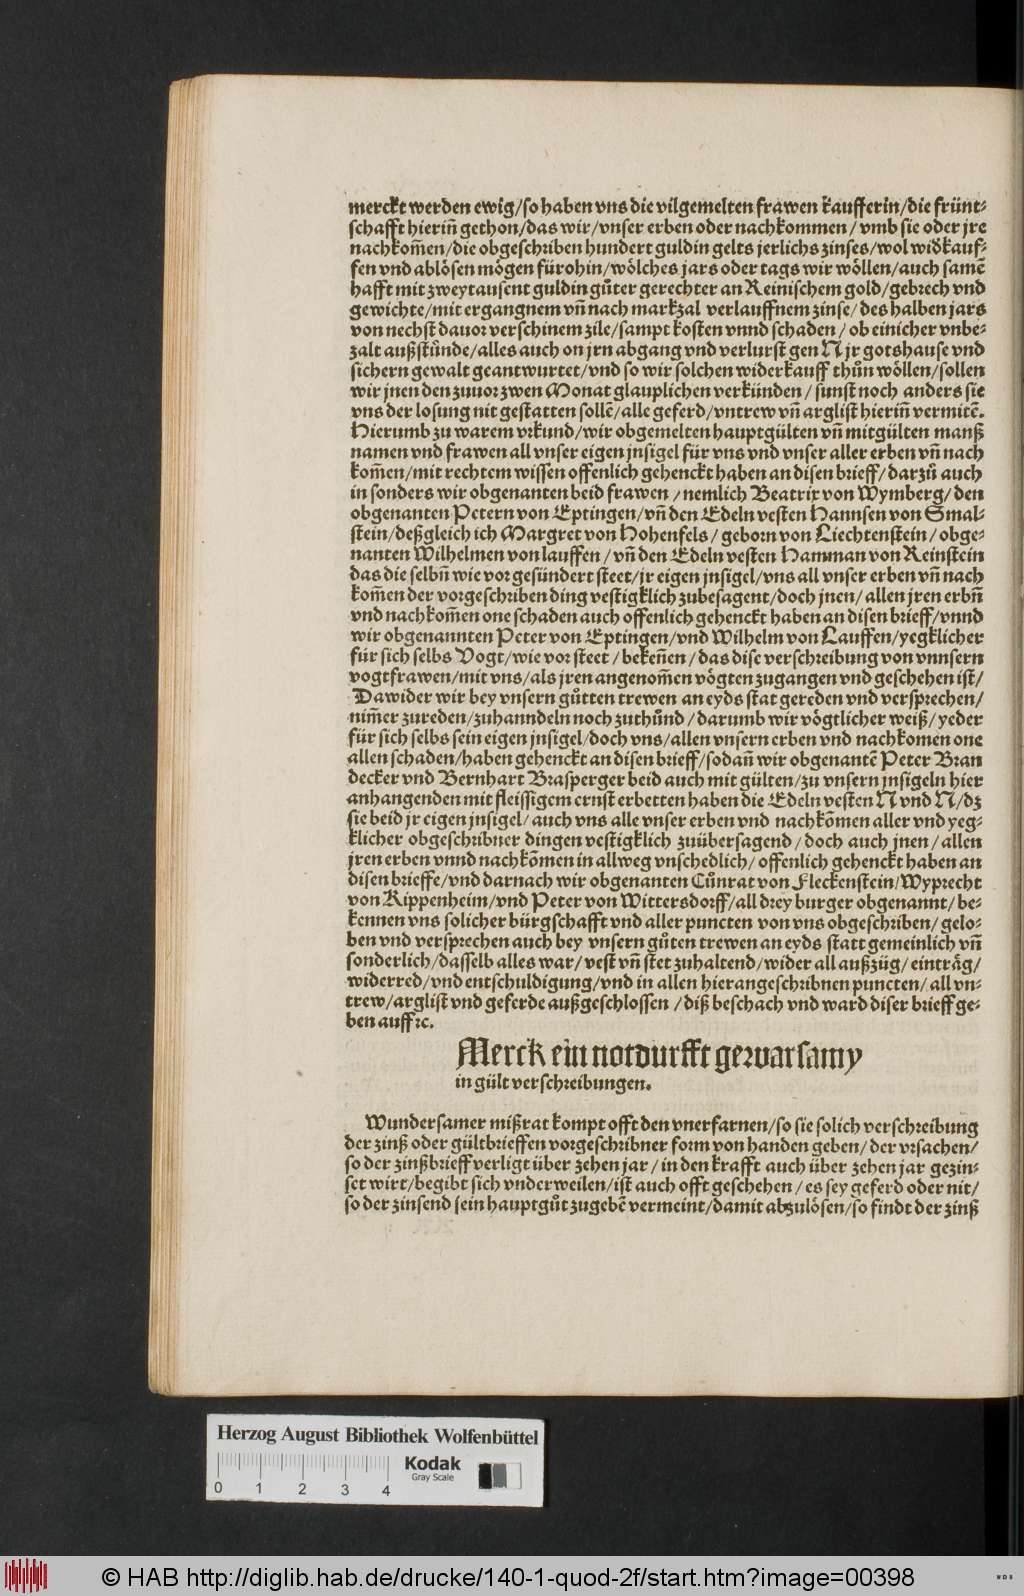 merckt werden ewig/so haben vns die vilgemelten frawen kaufferin/die früntz
schafft hieriñ gethon/das wir/vnser erben oder nachkommen/vmb sie oder jre
nachkom̃en/die obgeschriben hundert guldin gelts jerlichs zinses/wol widkauf⸗
fen vnd ablösen mögen fürohin/wölches jars oder tags wir wöllen/auch samē
hafft mit zweytausent guldin gůter gerechter an Reinischem gold/gebrech vnd
gewichte/mit ergangnem vñ nach markzal verlauffnem zinse/des halben jars
von nechst dauor verschinem zile/sampt kosten vnnd schaden/ob einicher vnbe⸗
zalt außstůnde/alles auch on jrn abgang vnd verlurst gen N jr gotshause vnd
sichern gewalt geantwurtet/vnd so wir solchen widerkauff thůn wöllen/sollen
wir jnen den zuuor zwen Monat glauplichen verkünden/sunst noch anders sie
vns der losung nit gestatten sollē/alle geferd/vntrew vñ arglist hieriñ vermitē.
Hierumb zu warem vrkund/wir obgemelten hauptgülten vñ mitgülten manß
namen vnd frawen all vnser eigen jnsigel für vns vnd vnser aller erben vñ nach
kom̃en/mit rechtem wissen offenlich gehenckt haben an disen brieff/darzů auch
in sonders wir obgenanten beid frawen/nemlich Beatrix von Wymberg/den
obgenanten Petern von Eptingen/vñ den Edeln vesten Hannsen von Smal⸗
stein/deßgleich ich Margret von Hohenfels/geborn von Liechtenstein/obge⸗
nanten Wilhelmen von lauffen/vñ den Edeln vesten Hamman von Reinstein
das die selbñ wie vor gesündert steet/jr eigen jnsigel/vns all vnser erben vñ nach
kom̃en der vorgeschriben ding vestigklich zubesagent/doch jnen/allen jren erbñ
vnd nachkom̃en one schaden auch offenlich gehenckt haben an disen brieff/vnnd
wir obgenannten Peter von Eptingen/vnd Wilhelm von Lauffen/yegklicher
für sich selbs Vogt/wie vor steet/bekeñen/das dise verschreibung von vnnsern
vogtfrawen/mit vns/als jren angenom̃en vögten zugangen vnd geschehen ist/
Dawider wir bey vnsern gůtten trewen an eyds stat gereden vnd versprechen/
nim̃er zureden/zuhanndeln noch zuthůnd/darumb wir vögtlicher weiß/yeder
für sich selbs sein eigen jnsigel/doch vns/allen vnsern erben vnd nachkomen one
allen schaden/haben gehenckt an disen brieff/sodañ wir obgenantē Peter Bran
decker vnd Bernhart Brasperger beid auch mit gülten/zu vnsern jnsigeln hier
anhangenden mit fleissigem ernst erbetten haben die Edeln vesten N vnd N/dz
sie beid jr eigen jnsigel/auch vns alle vnser erben vnd nachkōmen aller vnd yeg⸗
klicher obgeschribner dingen vestigklich zuübersagend/doch auch jnen/allen
jren erben vnnd nachkōmen in allweg vnschedlich/offenlich gehenckt haben an
disen brieffe/vnd darnach wir obgenanten Cůnrat von Fleckenstein/Wyprecht
von Rippenheim/vnd Peter von Wittersdorff/all drey burger obgenannt/be⸗
kennen vns solicher bürgschafft vnd aller puncten von vns obgeschriben/gelo⸗
ben vnd versprechen auch bey vnsern gůten trewen an eyds statt gemeinlich vñ
sonderlich/dasselb alles war/vest vñ stet zuhaltend/wider all außzüg/einträg/
widerred/vnd entschuldigung/vnd in allen hierangeschribnen puncten/all vn⸗
trew/arglist vnd geferde außgeschlossen/diß beschach vnd ward diser brieff ge⸗
ben auff ꝛc.
Merck ein notdurfft gewarsamy
in gült verschreibungen.
Wundersamer mißrat kompt offt den vnerfarnen/so sie solich verschreibung
der zinß oder gültbrieffen vorgeschribner form von handen geben/der vrsachen/
so der zinßbrieff verligt über zehen jar/in den krafft auch über zehen jar gezin⸗
set wirt/begibt sich vnderweilen/ist auch offt geschehen/es sey geferd oder nit/
so der zinsend sein hauptgůt zugebē vermeint/damit abzulösen/so findt der zinß
Herzog August Bibliothek Wolfenbüttel
Kodak
Gray Scale
0 1 2 3 4
© HAB http://diglib.hab.de/drucke/140-1-quod-2f/start.htm?image=00398